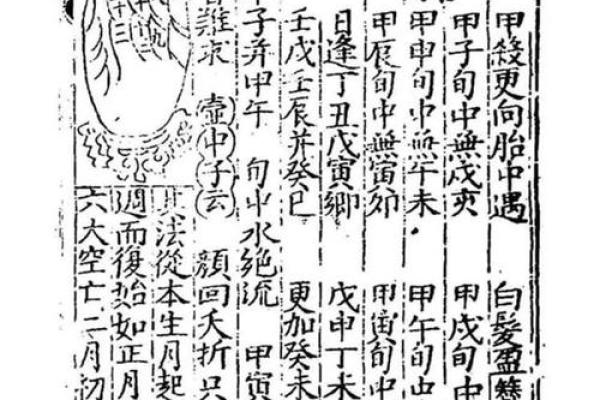 甲殺更向胎中遇　白髮盈簪
甲子旬中無戌亥　甲戌旬中
甲申旬中無午未　甲午旬中
甲辰旬中無寅卯　甲寅旬中
日逢丁丑戊寅鄉　戊申丁未
壬戌壬辰并癸巳　更加癸未
子并甲午　旬中水絕流　甲寅
難求　壺中子云　顏回夭折只
其法從本生月起
週而復始如正月
六大空亡二月初